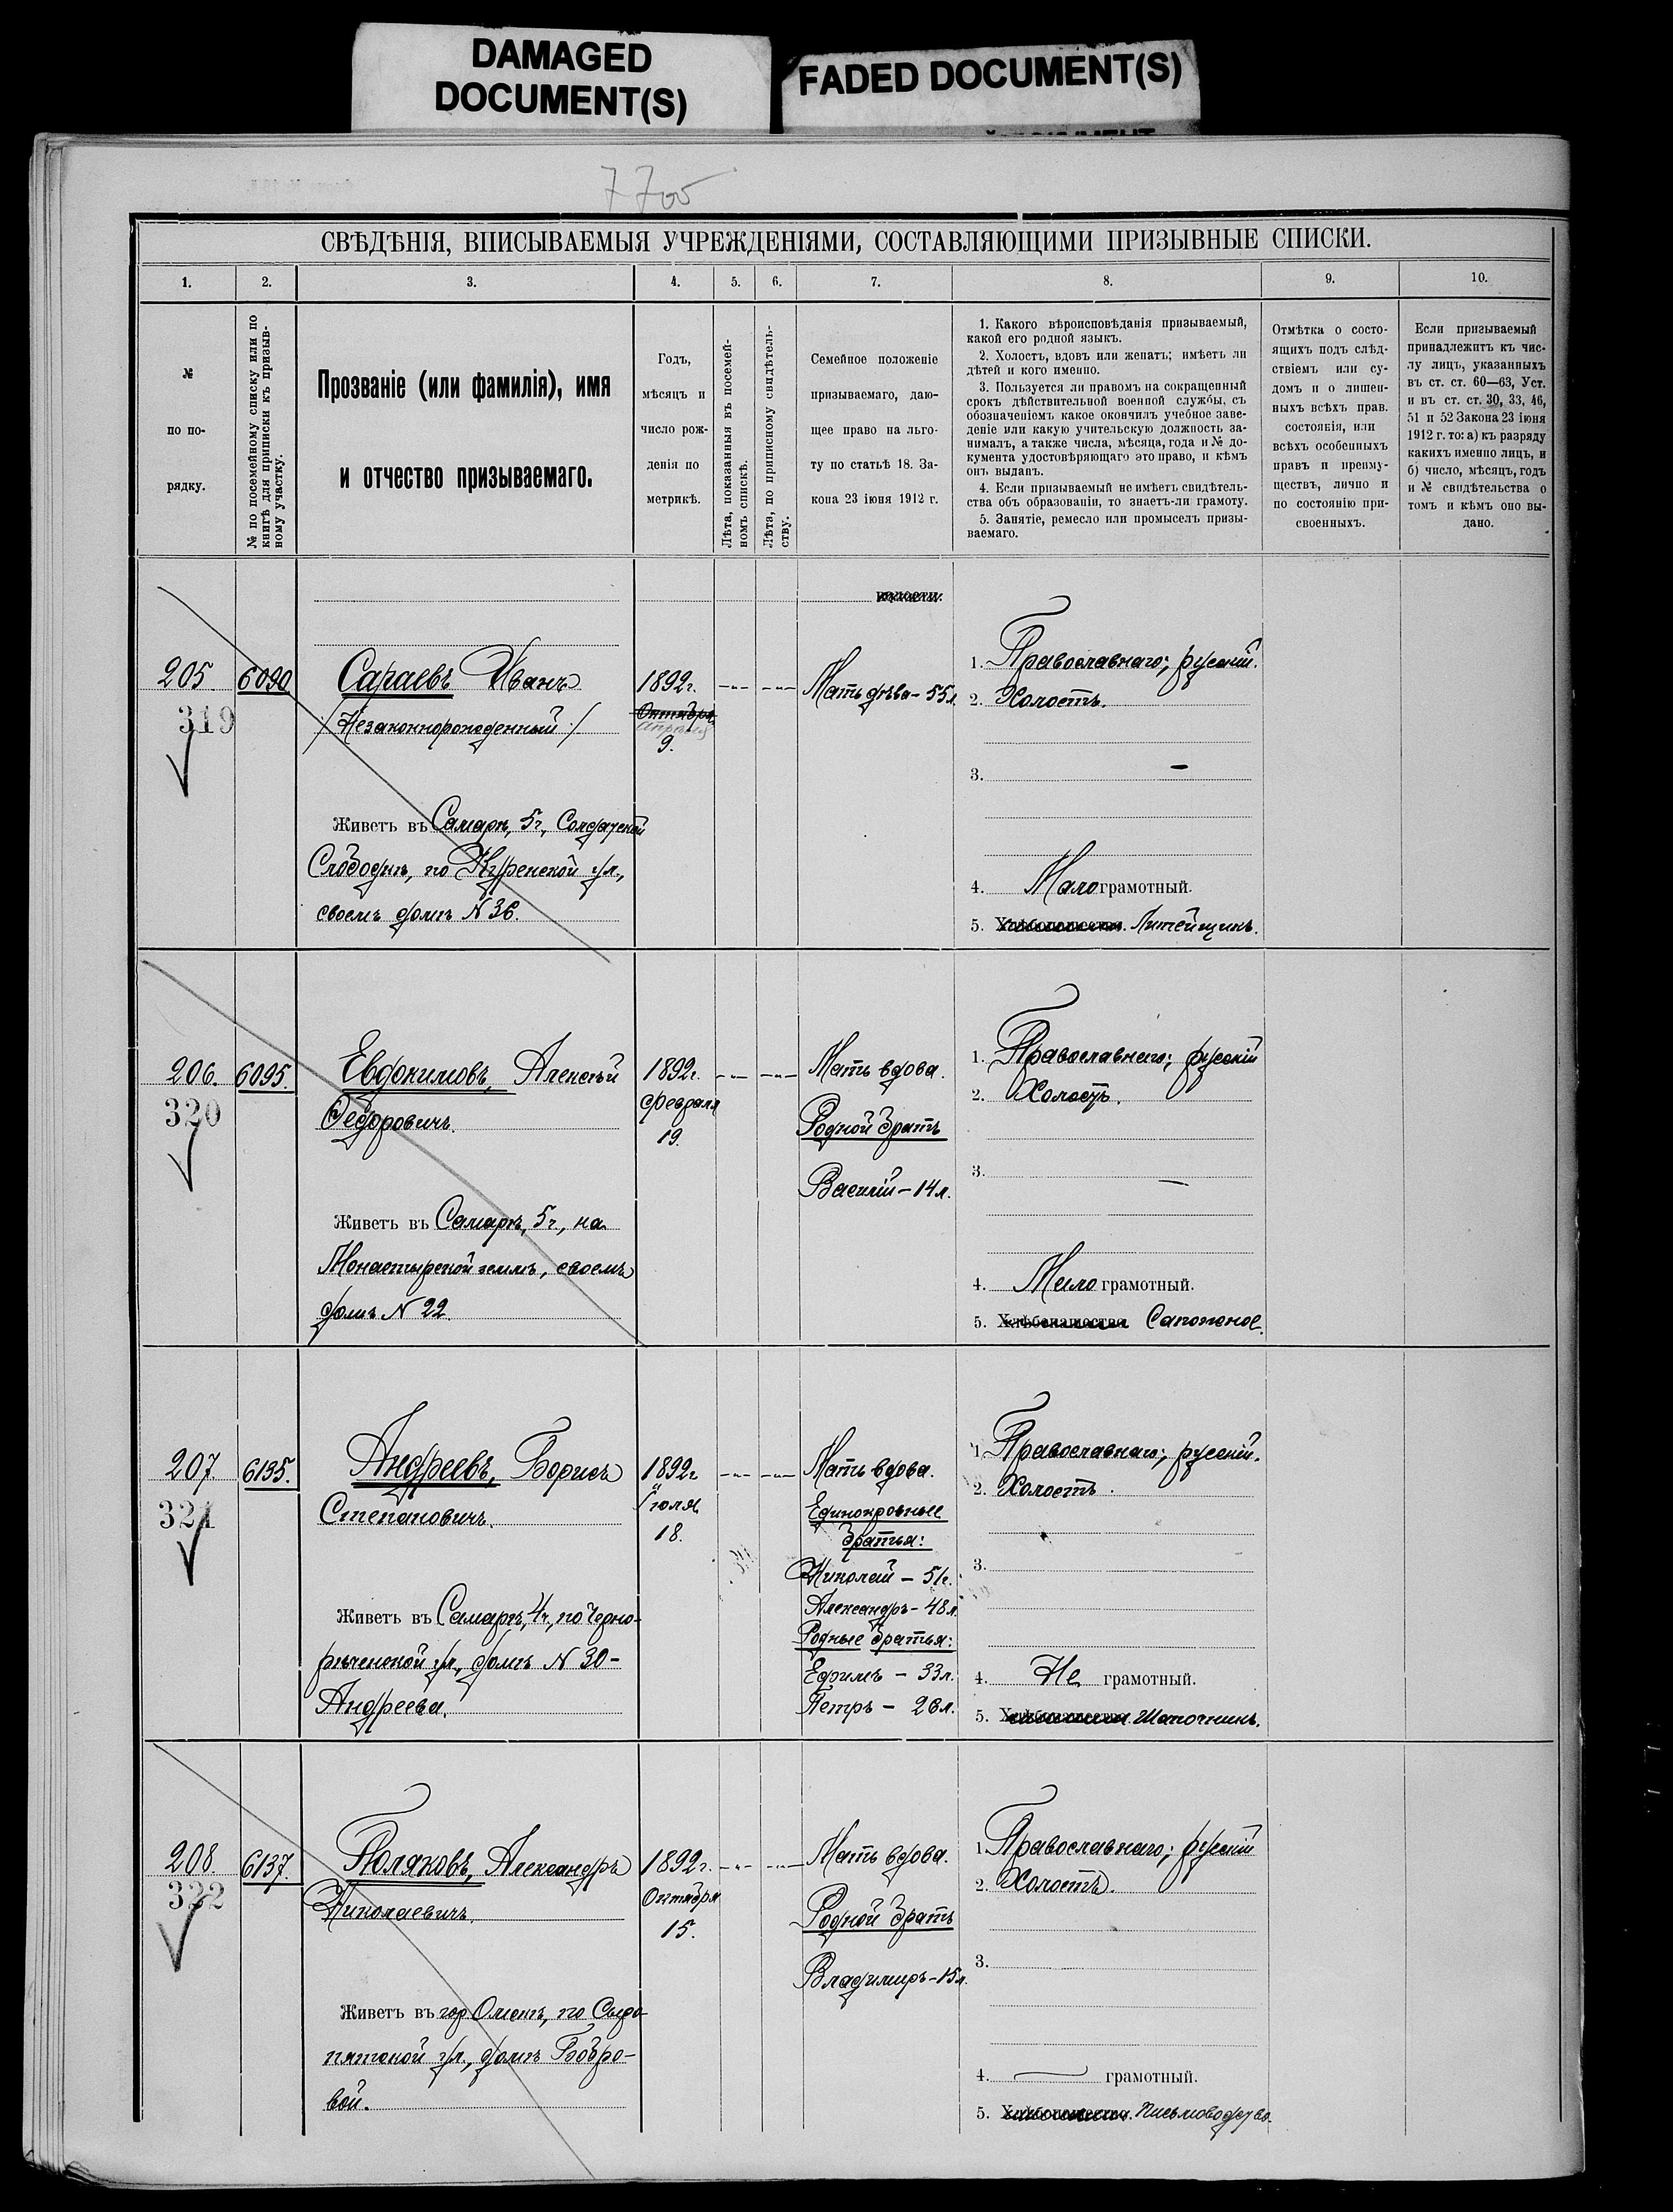 DAMAGED
DOCUMENT(S)
FADED DOCUMENT(S)
7705
СВѢДѢНІЯ, ВПИСЫВАЕМЫЯ УЧРЕЖДЕНІЯМИ, СОСТАВЛЯЮЩИМИ ПРИЗЫВНЫЕ СПИСКИ.
1. 2. 3. 4. 5. 6. 7. 8. 9. 10.
№
по по-
рядку.
№ по посемейному списку или по
книгѣ для приписки къ призыв-
ному участку.
Прозваніе (или фамилія), имя
и отчество призываемаго.
Годъ,
мѣсяцъ и
число рож-
денія по
метрикѣ.
Лѣта, показанныя въ посемей-
номъ спискѣ.
Лѣта, по приписному свидѣтель-
ству.
Семейное положеніе
призываемаго, даю-
щее право на льго-
ту по статьѣ 18. За-
кона 23 іюня 1912 г.
1. Какого вѣроисповѣданія призываемый,
какой его родной языкъ.
2. Холостъ, вдовъ или женатъ; имѣетъ ли
дѣтей и кого именно.
3. Пользуется ли правомъ на сокращенный
срокъ дѣйствительной военной службы, съ
обозначеніемъ какое окончилъ учебное заве-
деніе или какую учительскую должность за-
нималъ, а также числа, мѣсяца, года и № до-
кумента удостовѣряющаго это право, и кѣмъ
онъ выданъ.
4. Если призываемый не имѣетъ свидѣтель-
ства объ образованіи, то знаетъ-ли грамоту.
5. Занятіе, ремесло или промыселъ призы-
ваемаго.
Отмѣтка о состо-
ящихъ подъ слѣд-
ствіемъ или су-
домъ и о лишен-
ныхъ всѣхъ прав.
состоянія, или
всѣхъ особенныхъ
правъ и преиму-
ществъ, лично и
по состоянію при-
своенныхъ.
Если призываемый
принадлежитъ къ чис-
лу лицъ, указанныхъ
въ ст. ст. 60—63, Уст.
и въ ст. ст. 30, 33, 46,
51 и 52 Закона 23 іюня
1912 г. то: а) къ разряду
какихъ именно лицъ, и
б) число, мѣсяцъ, годъ
и № свидѣтельства о
томъ и кѣмъ оно вы-
дано.
волости.
205
319
6090
Сараевъ Иванъ
/Незаконнорожденный/
Живетъ въ Самарѣ, 5ч., Солдатской
Слободкѣ, по ской ул.,
своемъ домѣ N 36.
1892г.
Октября
Апрѣля
9.
Мать дѣва - 55л.
1. Православнаго; русскій.
2. Холостъ.
3. —
4. Малограмотный.
5. Хлѣбопашество. Литейщикъ.
206.
320
6095.
Евдокимовъ, Алексѣй
Федоровичъ.
Живетъ въ Самарѣ, 5ч., на
Монастырской землѣ, своемъ
домѣ N 22.
1892г.
Февраля
19.
Мать вдова.
Родной братъ
Василій - 14л.
1. Православнаго; русскій
2. Холостъ.
3. —
4. Мало грамотный.
5. Хлѣбопашество Сапожное.
207.
321
6135.
Андреевъ, Борисъ
Степановичъ.
Живетъ въ Самарѣ, 4ч., по Черно-
рѣченской ул., домъ N 30-
Андреева.
1892г.
Іюля
18.
Мать вдова.
Единокровные
братья:
Николай - 51г.
Александръ - 48л.
Родные братья:
Ефимъ - 33л.
Петръ - 26л.
1. Православнаго; русскій.
2. Холостъ.
3.
4. Не грамотный.
5. Хлѣбопашество. Шапочникъ.
208.
322
6137.
Поляковъ, Александръ
Николаевичъ.
Живетъ въ гор Омскѣ, по
ской ул., домъ Бобро-
вой.
1892г.
Октября
15.
Мать вдова.
Родной братъ
Владимиръ - 15л.
1. Православнаго; русскій
2. Холостъ.
3.
4. — грамотный.
5. Хлѣбопашество. Письмоводство.